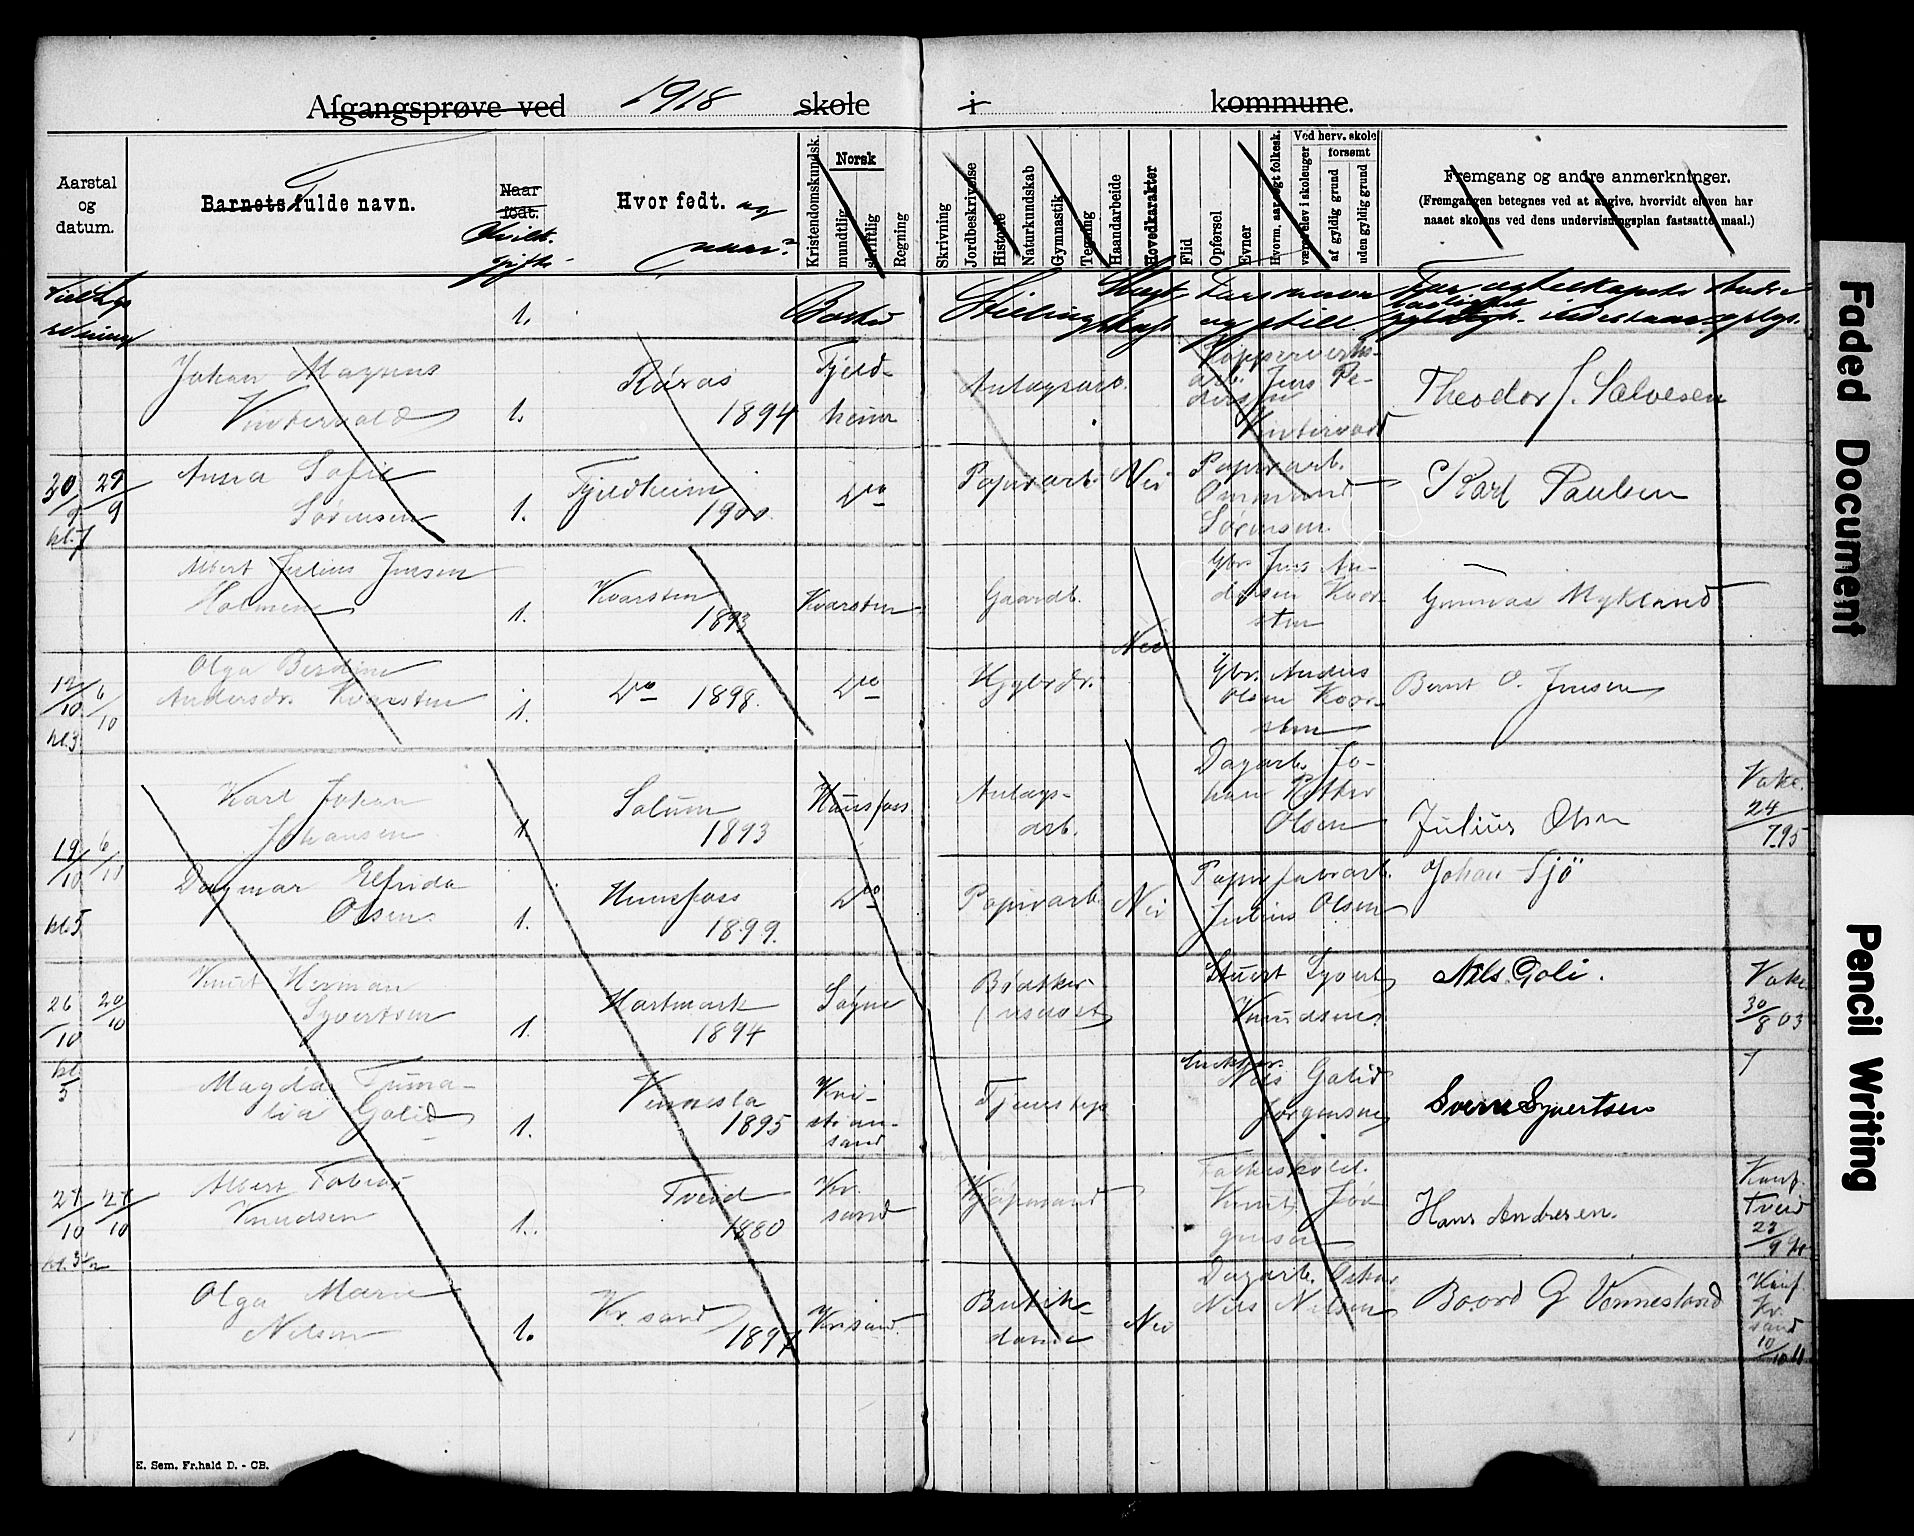 Afgangsprøve ved 1918 skole i kommune.
Aarstal og datum.
Barnets fulde navn.
Naar født.
Hvor født. og naar?
Kristendomskundsk.
Norsk
mundtlig
skriftlig
Regning
Skrivning
Jordbeskrivelse
Historie
Naturkundskab
Gymnastik
Tegning
Haandarbeide
Hovedkarakter
Flid
Opførsel
Evner
Hvorm. aar søgt folkesk.
Ved herv. skole
været elev i skoleuger
forsømt
af gyldig grund
uden gyldig grund
Fremgang og andre anmerkninger.
(Fremgangen betegnes ved at angive, hvorvidt eleven har
naaet skolens ved dens undervisningsplan fastsatte maal.)
1. Bosted Stilling
Johan Magnus
Vintervold 1. Røros 1894 Fjeldheim Anlægsarb. Jens Pedersen Vintervold Theodor S. Salvesen
30/9 29/9 kl. 7
Anna Sofie
Sørensen 1. Fjeldheim 1900. Do Papirarb. Nei Papirarb. Ommund Sørensen. Karl Paulsen
Albert Julius Jensen
Holmen 1. Kvarsten 1893 Kvarsten Gaardb. Gbr. Jens Andersen Kvarsten Gunnar Mykland
12/10 6/10 kl. 3
Olga Berdine
Andersdr. Kvarsten 1. Do 1898. Do Nei Gbr. Anders Olsen Kvarsten Bernt O. Jensen
19/10 6/10 kl. 5
Karl Johan
Johansen 1. Solum 1893 Hunsfoss Anlægsarb. Dagarb. Johan Petter Olsen Julius Olsen Vake. 24/7 95
Dagmar Elfrida
Olsen. 1. Hunsfoss 1899. Do Papirarb. Nei Papirfabrarb. Julius Olsen Johan Sjö
26/10 20/10 kl 5
Knut Herman
Syvertsen 1. Hartmark 1894 Søgne Stuert Syvert Knudsen. Nils Goli. Vake 30/8 03
Magda
Golid 1. Vennesla 1895 Kristiansand Tjenestep Nils Golid Jørgensen Sverre Syvertsen
27/10 27/10 kl. 3 1/2
Albert Tobias
Knudsen 1. Tveid 1880 Kr. sand Kjøpmand Knut Jørgensen Hans Andresen. Konf. Tveid
Olga Marie
Nilsen 1. Kr. sand 1897 Kr. sand. Butikdame Nei Dagarb. Oskar Nils Nilsen Baard G Vennesland Konf. Kr. sand 10/10 11
E. Sem. Fr.hald D. - CB.
Faded Document
Pencil Writing